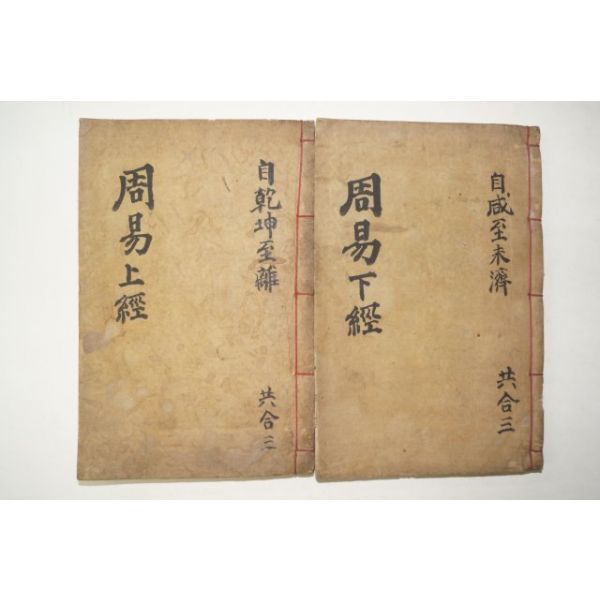 周易上經
自乾坤至離
共合三
周易下經
自咸至未濟
共合三